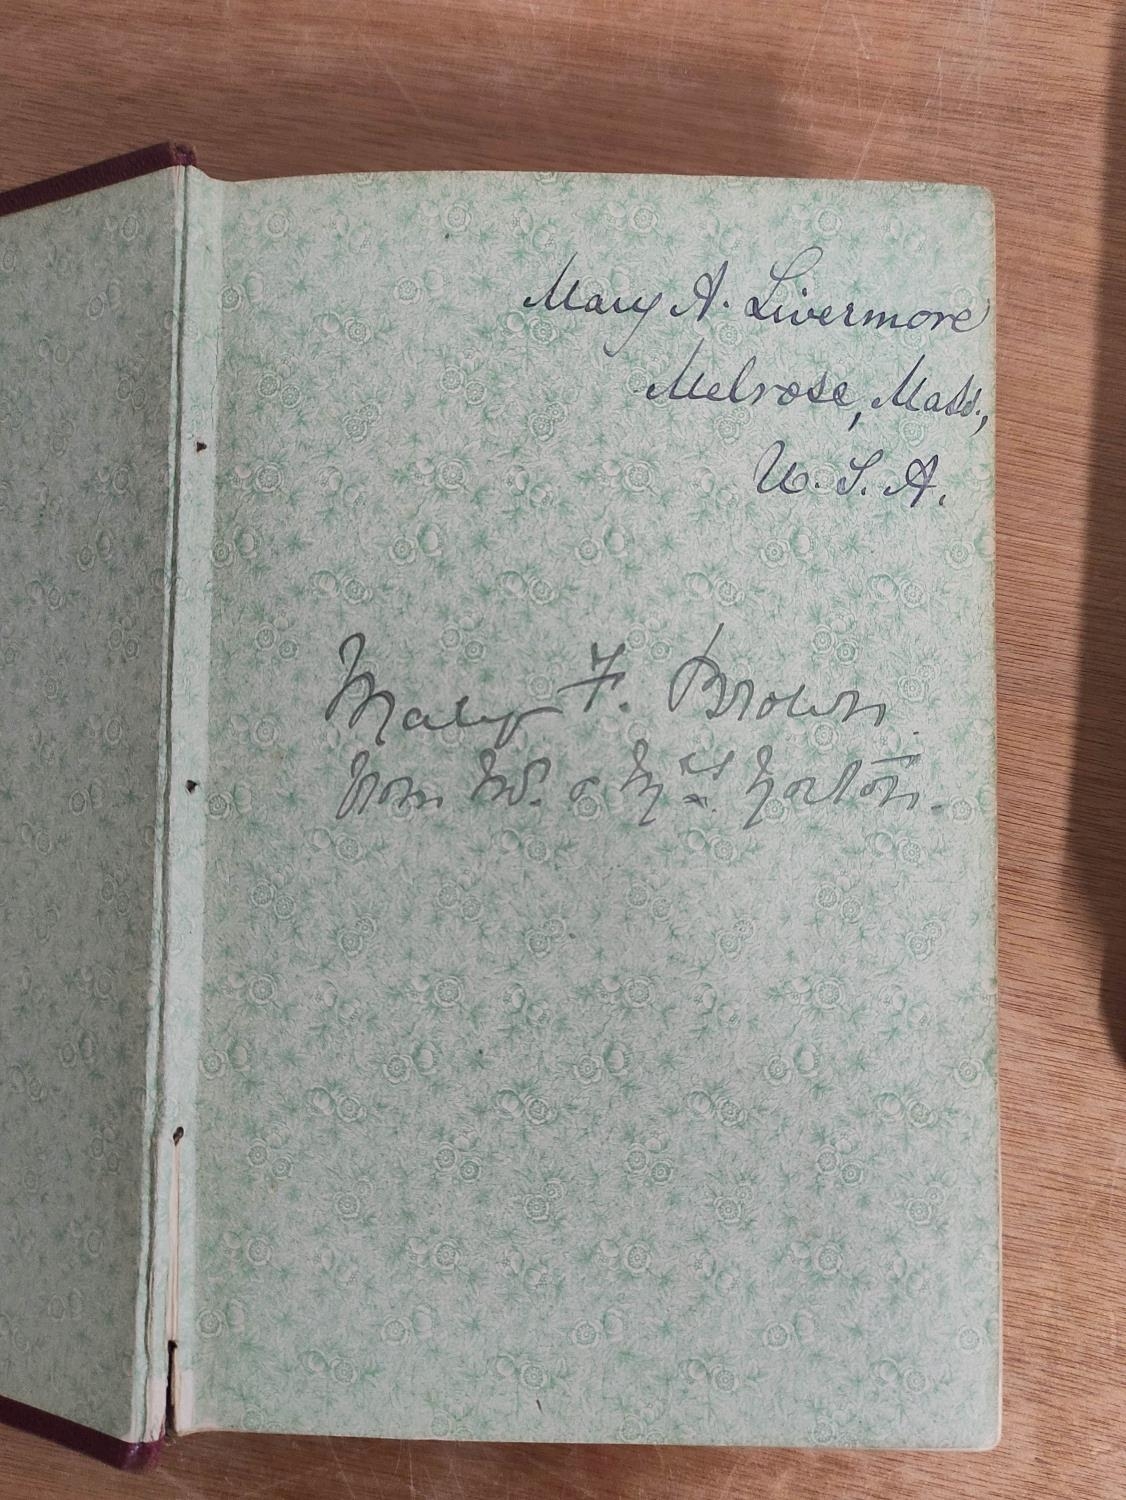 Mary A. Livermore
Melrose, Mass.,
U. S. A.
Mary F. Brown.
from W. & Mrs. Norton.